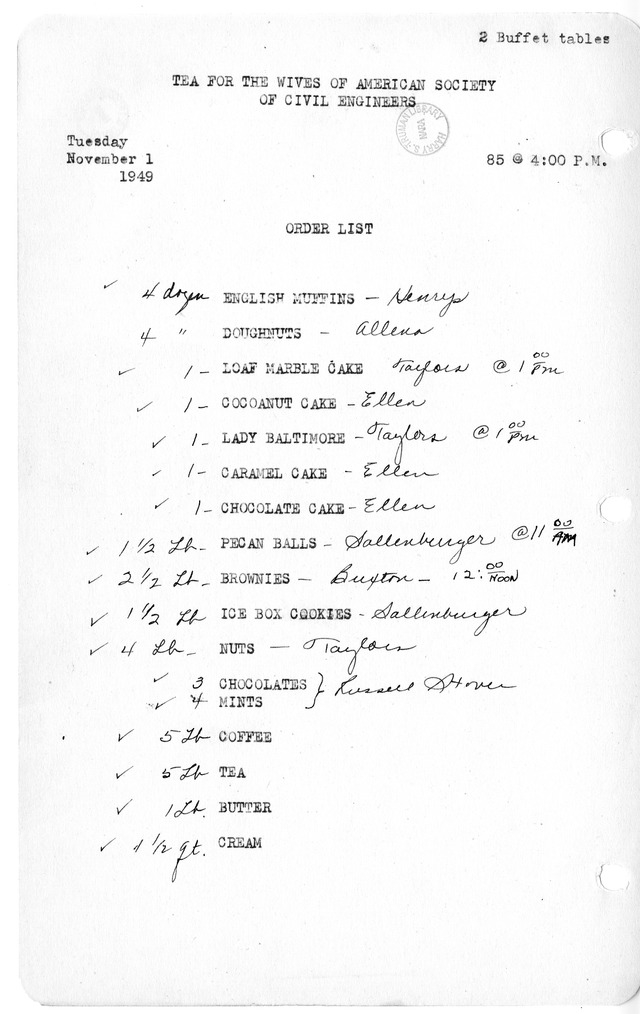 2 Buffet tables
TEA FOR THE WIVES OF AMERICAN SOCIETY
OF CIVIL ENGINEERS
HARRY S. TRUMAN LIBRARY
NARA
Tuesday
November 1
1949
85 @ 4:00 P.M.
ORDER LIST
✓ 4 dozen ENGLISH MUFFINS - Henrys
4 " DOUGHNUTS - Allens
✓ 1 - LOAF MARBLE CAKE Taylors @ 1 00 Pm
✓ 1 - COCOANUT CAKE - Ellen
✓ 1 - LADY BALTIMORE - Taylors @ 1 00 Pm
✓ 1 - CARAMEL CAKE - Ellen
✓ 1 - CHOCOLATE CAKE - Ellen
✓ 1 1/2 Lb - PECAN BALLS - Sallenburger @ 11 00 AM
✓ 2 1/2 Lb - BROWNIES - Buxton - 12:00 NOON
✓ 1 1/2 Lb ICE BOX COOKIES - Sallenburger
✓ 4 Lb - NUTS - Taylors
✓ 3 CHOCOLATES } Russell Stover
✓ 4 MINTS
✓ 5 Lb COFFEE
✓ 5 Lb TEA
✓ 1 Lb. BUTTER
✓ 1 1/2 qt. CREAM